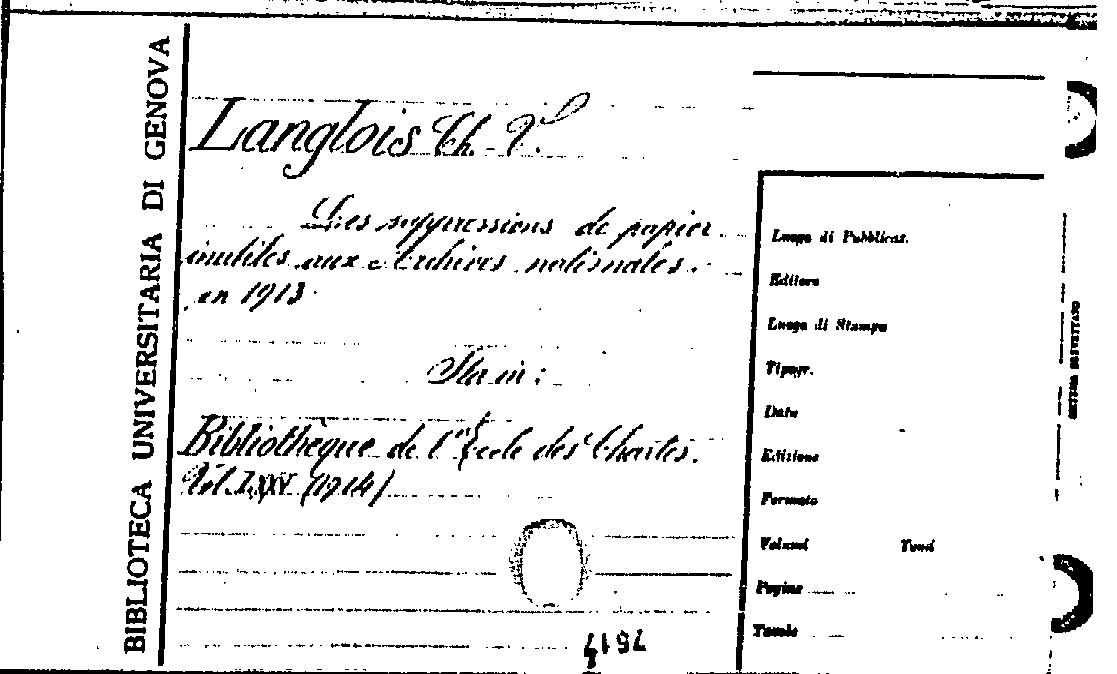 BIBLIOTECA UNIVERSITARIA DI GENOVA
Langlois Ch. V.
Les suppressions de papier
inutiles aux Archives nationales.
en 1913
Sta in:
Bibliothèque de l'École des Chartes.
Vol. LXXV (1914)
Luogo di Pubblicaz.
Editore
Luogo di Stampa
Tipogr.
Data
Edizione
Formato
Volumi
Pagine
Tavole